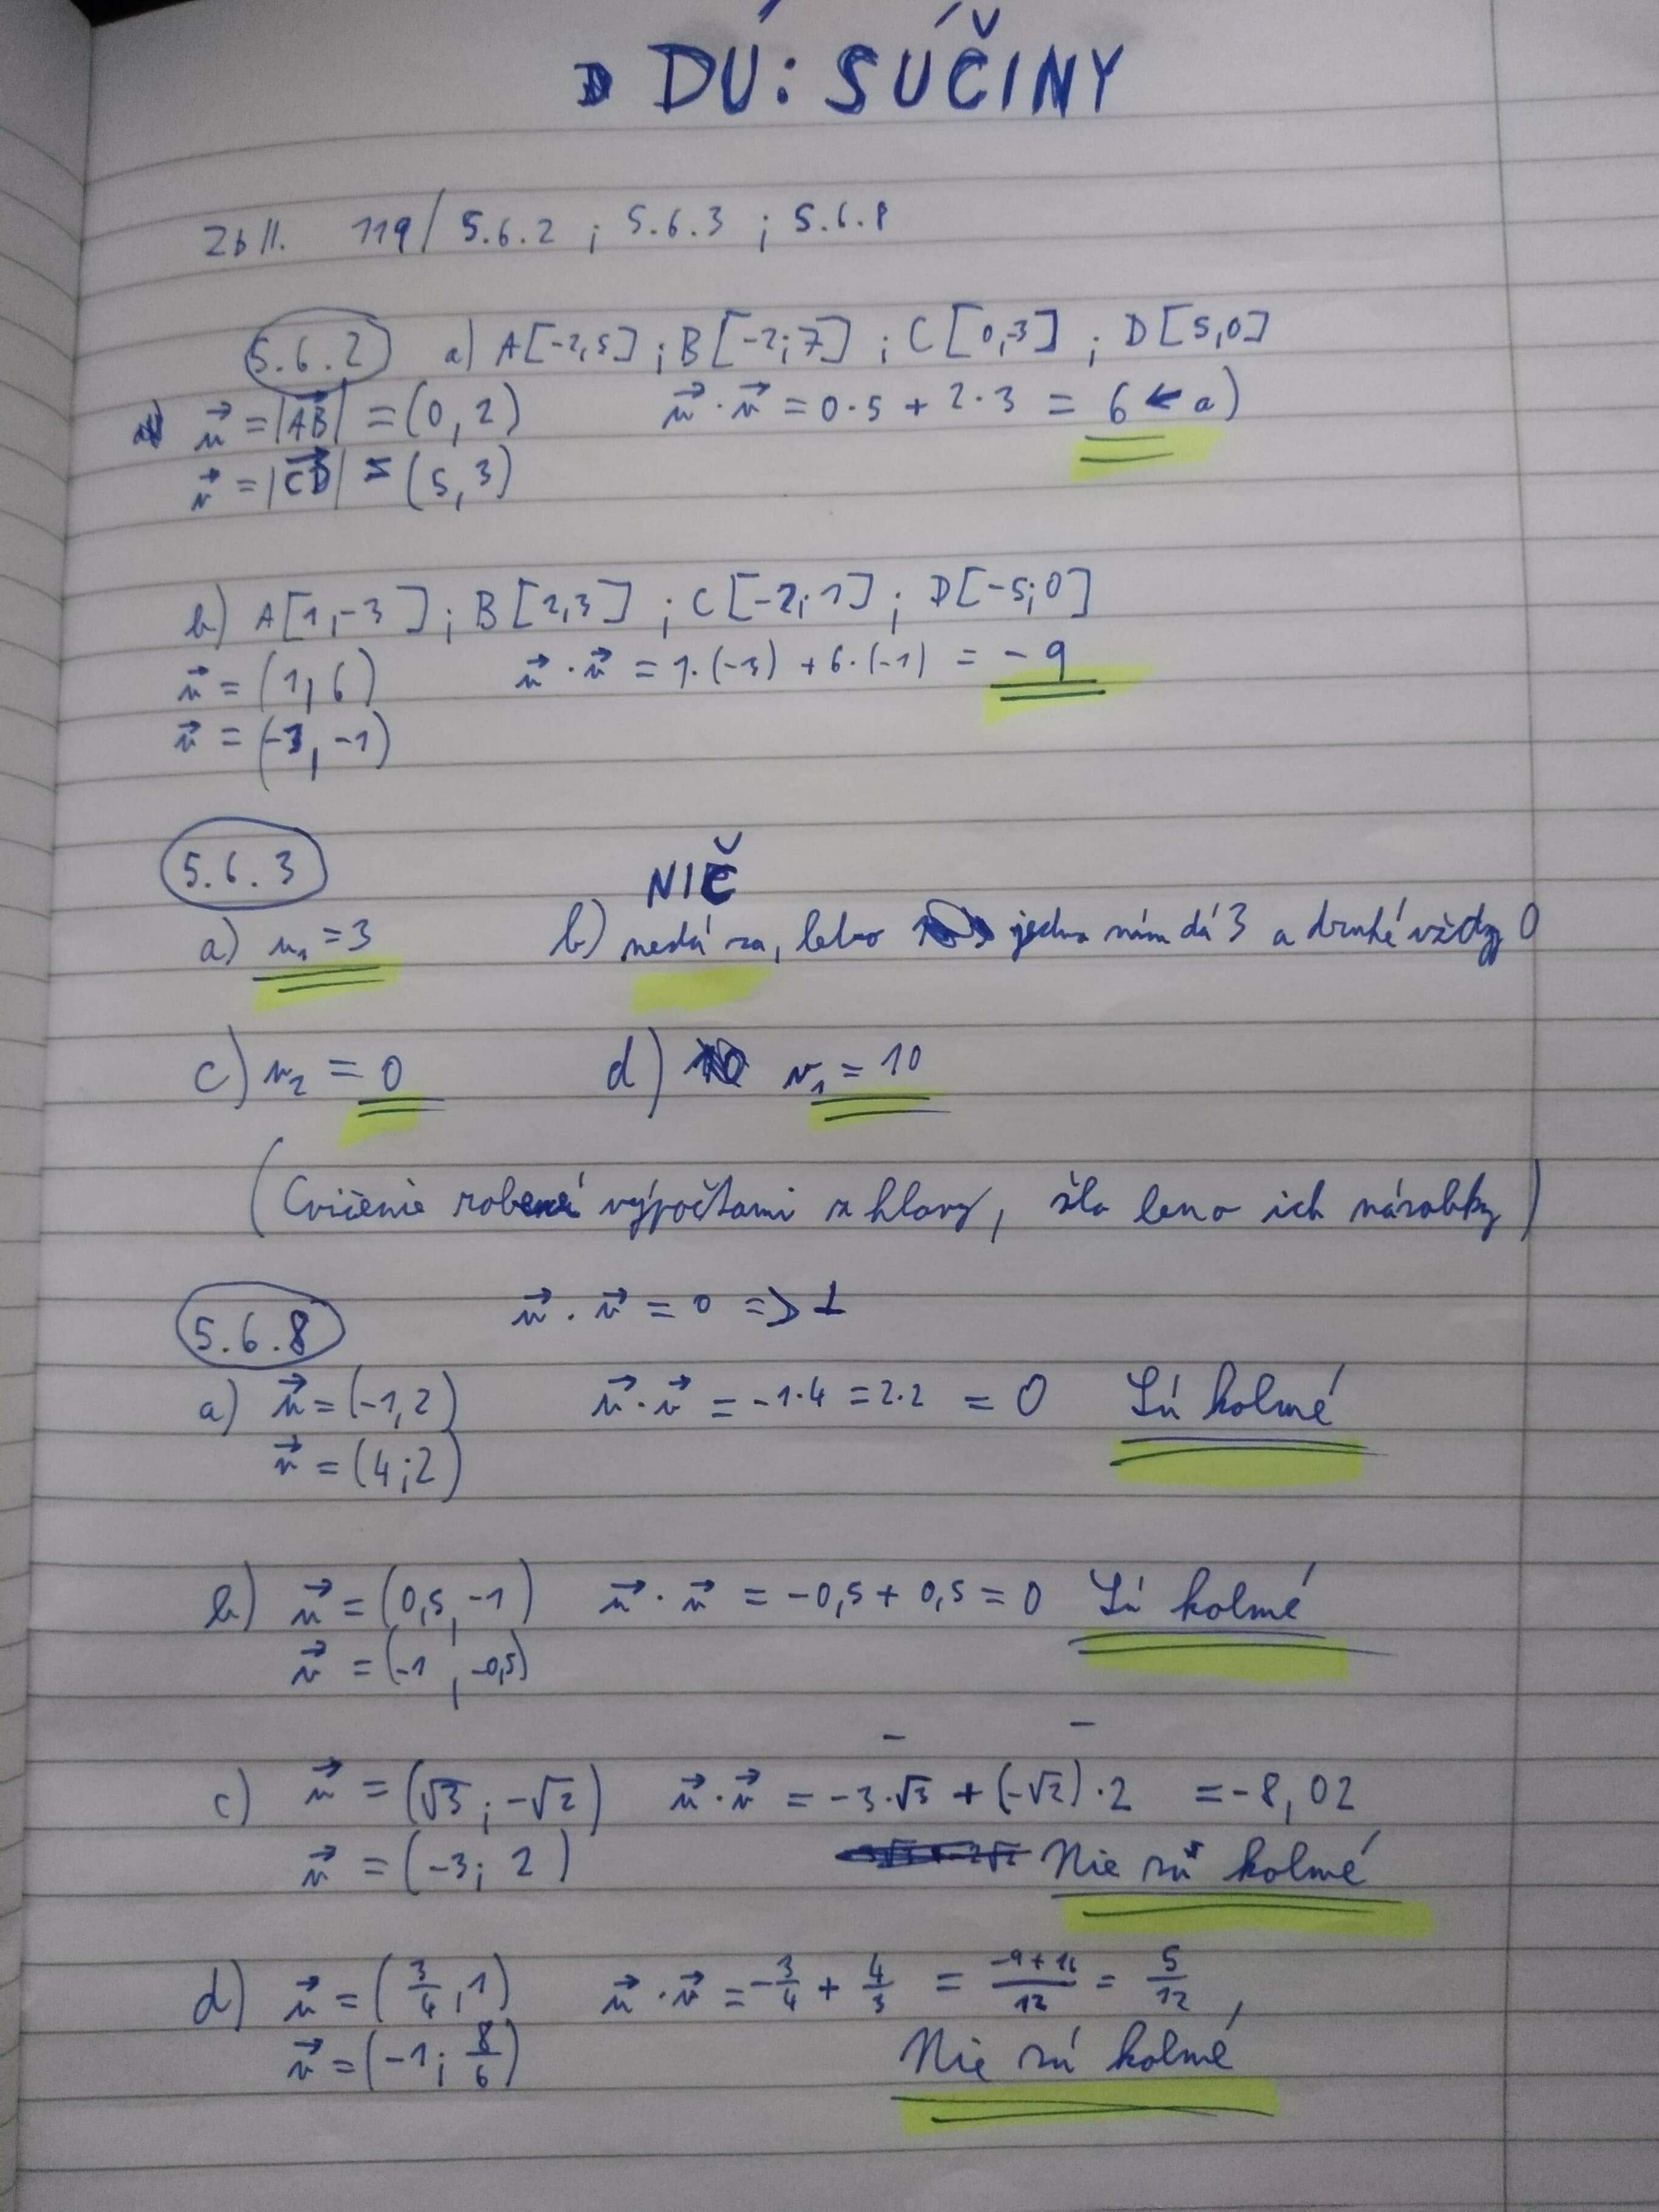 DÚ: SÚČINY
Zb II. 119/ 5.6.2 ; 5.6.3 ; 5.6.8
5.6.2 a) A[-2,5] ; B[-2;7] ; C[0,-3] ; D[5,0]
u⃗ = |AB⃗| = (0, 2) u⃗ · v⃗ = 0·5 + 2·3 = 6 ← a)
v⃗ = |CD⃗| = (5, 3)
b) A[1,-3] ; B[2,3] ; C[-2;1] ; D[-5;0]
u⃗ = (1, 6) u⃗ · v⃗ = 1·(-3) + 6·(-1) = -9
v⃗ = (-3, -1)
5.6.3 NIČ
a) u₁ = 3 b) nedá sa, lebo jedno nám dá 3 a druhé vždy 0
c) u₂ = 0 d) v₁ = 10
(Cvičenie robené výpočtami z hlavy, šlo leno ich)
5.6.8 u⃗ · v⃗ = 0 => ⊥
a) u⃗ = (-1, 2) u⃗ · v⃗ = -1·4 = 2·2 = 0 Sú kolmé
v⃗ = (4;2)
b) u⃗ = (0,5, -1) u⃗ · v⃗ = -0,5 + 0,5 = 0 Sú kolmé
v⃗ = (-1, -0,5)
c) u⃗ = (√3 ; -√2) u⃗ · v⃗ = -3·√3 + (-√2)·2 = -8,02
v⃗ = (-3; 2) Nie sú kolmé
d) u⃗ = (3/4, 1) u⃗ · v⃗ = -3/4 + 4/3 = (-9+16)/12 = 5/12,
v⃗ = (-1; 8/6) Nie sú kolmé